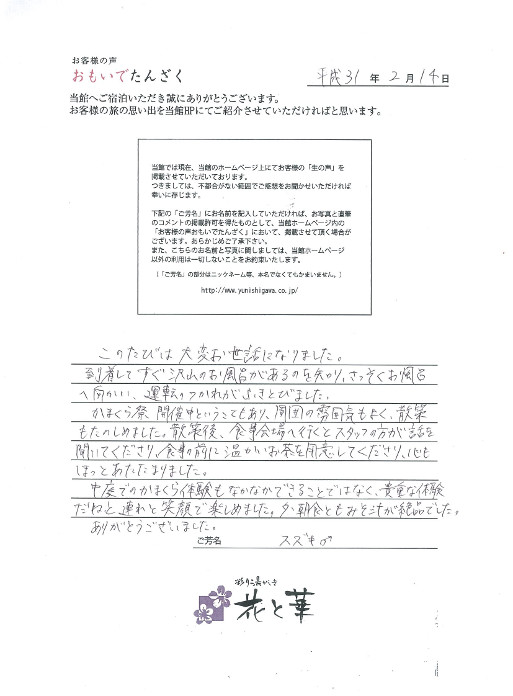 お客様の声
おもいでたんざく
平成31年 2月14日
当館へご宿泊いただき誠にありがとうございます。
お客様の旅の思い出を当館HPにてご紹介させていただければと思います。
当館では現在、当館のホームページ上にてお客様の「生の声」を
掲載させていただいております。
つきましては、不都合がない範囲でご感想をお聞かせいただければ
幸いに存じます。
下記の「ご芳名」にお名前を記入していただければ、お写真と直筆
のコメントの掲載許可を得たものとして、当館ホームページ内の
「お客様の声おもいでたんざく」において、掲載させて頂く場合が
ございます。あらかじめご了承下さい。
また、こちらのお名前と写真に関しましては、当館ホームページ
以外の利用は一切しないことをお約束いたします。
（「ご芳名」の部分はニックネーム等、本名でなくてもかまいません。）
http://www.yunishigawa.co.jp/
このたびは大変お世話になりました。
到着してすぐ沢山のお風呂があるのを知り、さっそくお風呂
へ向かい、運転のつかれがふきとびました。
かまくら祭開催中ということもあり、周囲の雰囲気もよく、散策
もたのしめました。散策後、食事会場へ行くとスタッフの方が話を
聞いてくださり、食事の前に温かいお茶を用意してくださり、心も
ほっとあたたまりました。
中庭でのかまくら体験もなかなかできることではなく、貴重な体験
だねと連れと笑顔で楽しめました。夕・朝食ともみそ汁が絶品でした。
ありがとうございました。
ご芳名 スズキ
彩り湯かしき
花と華